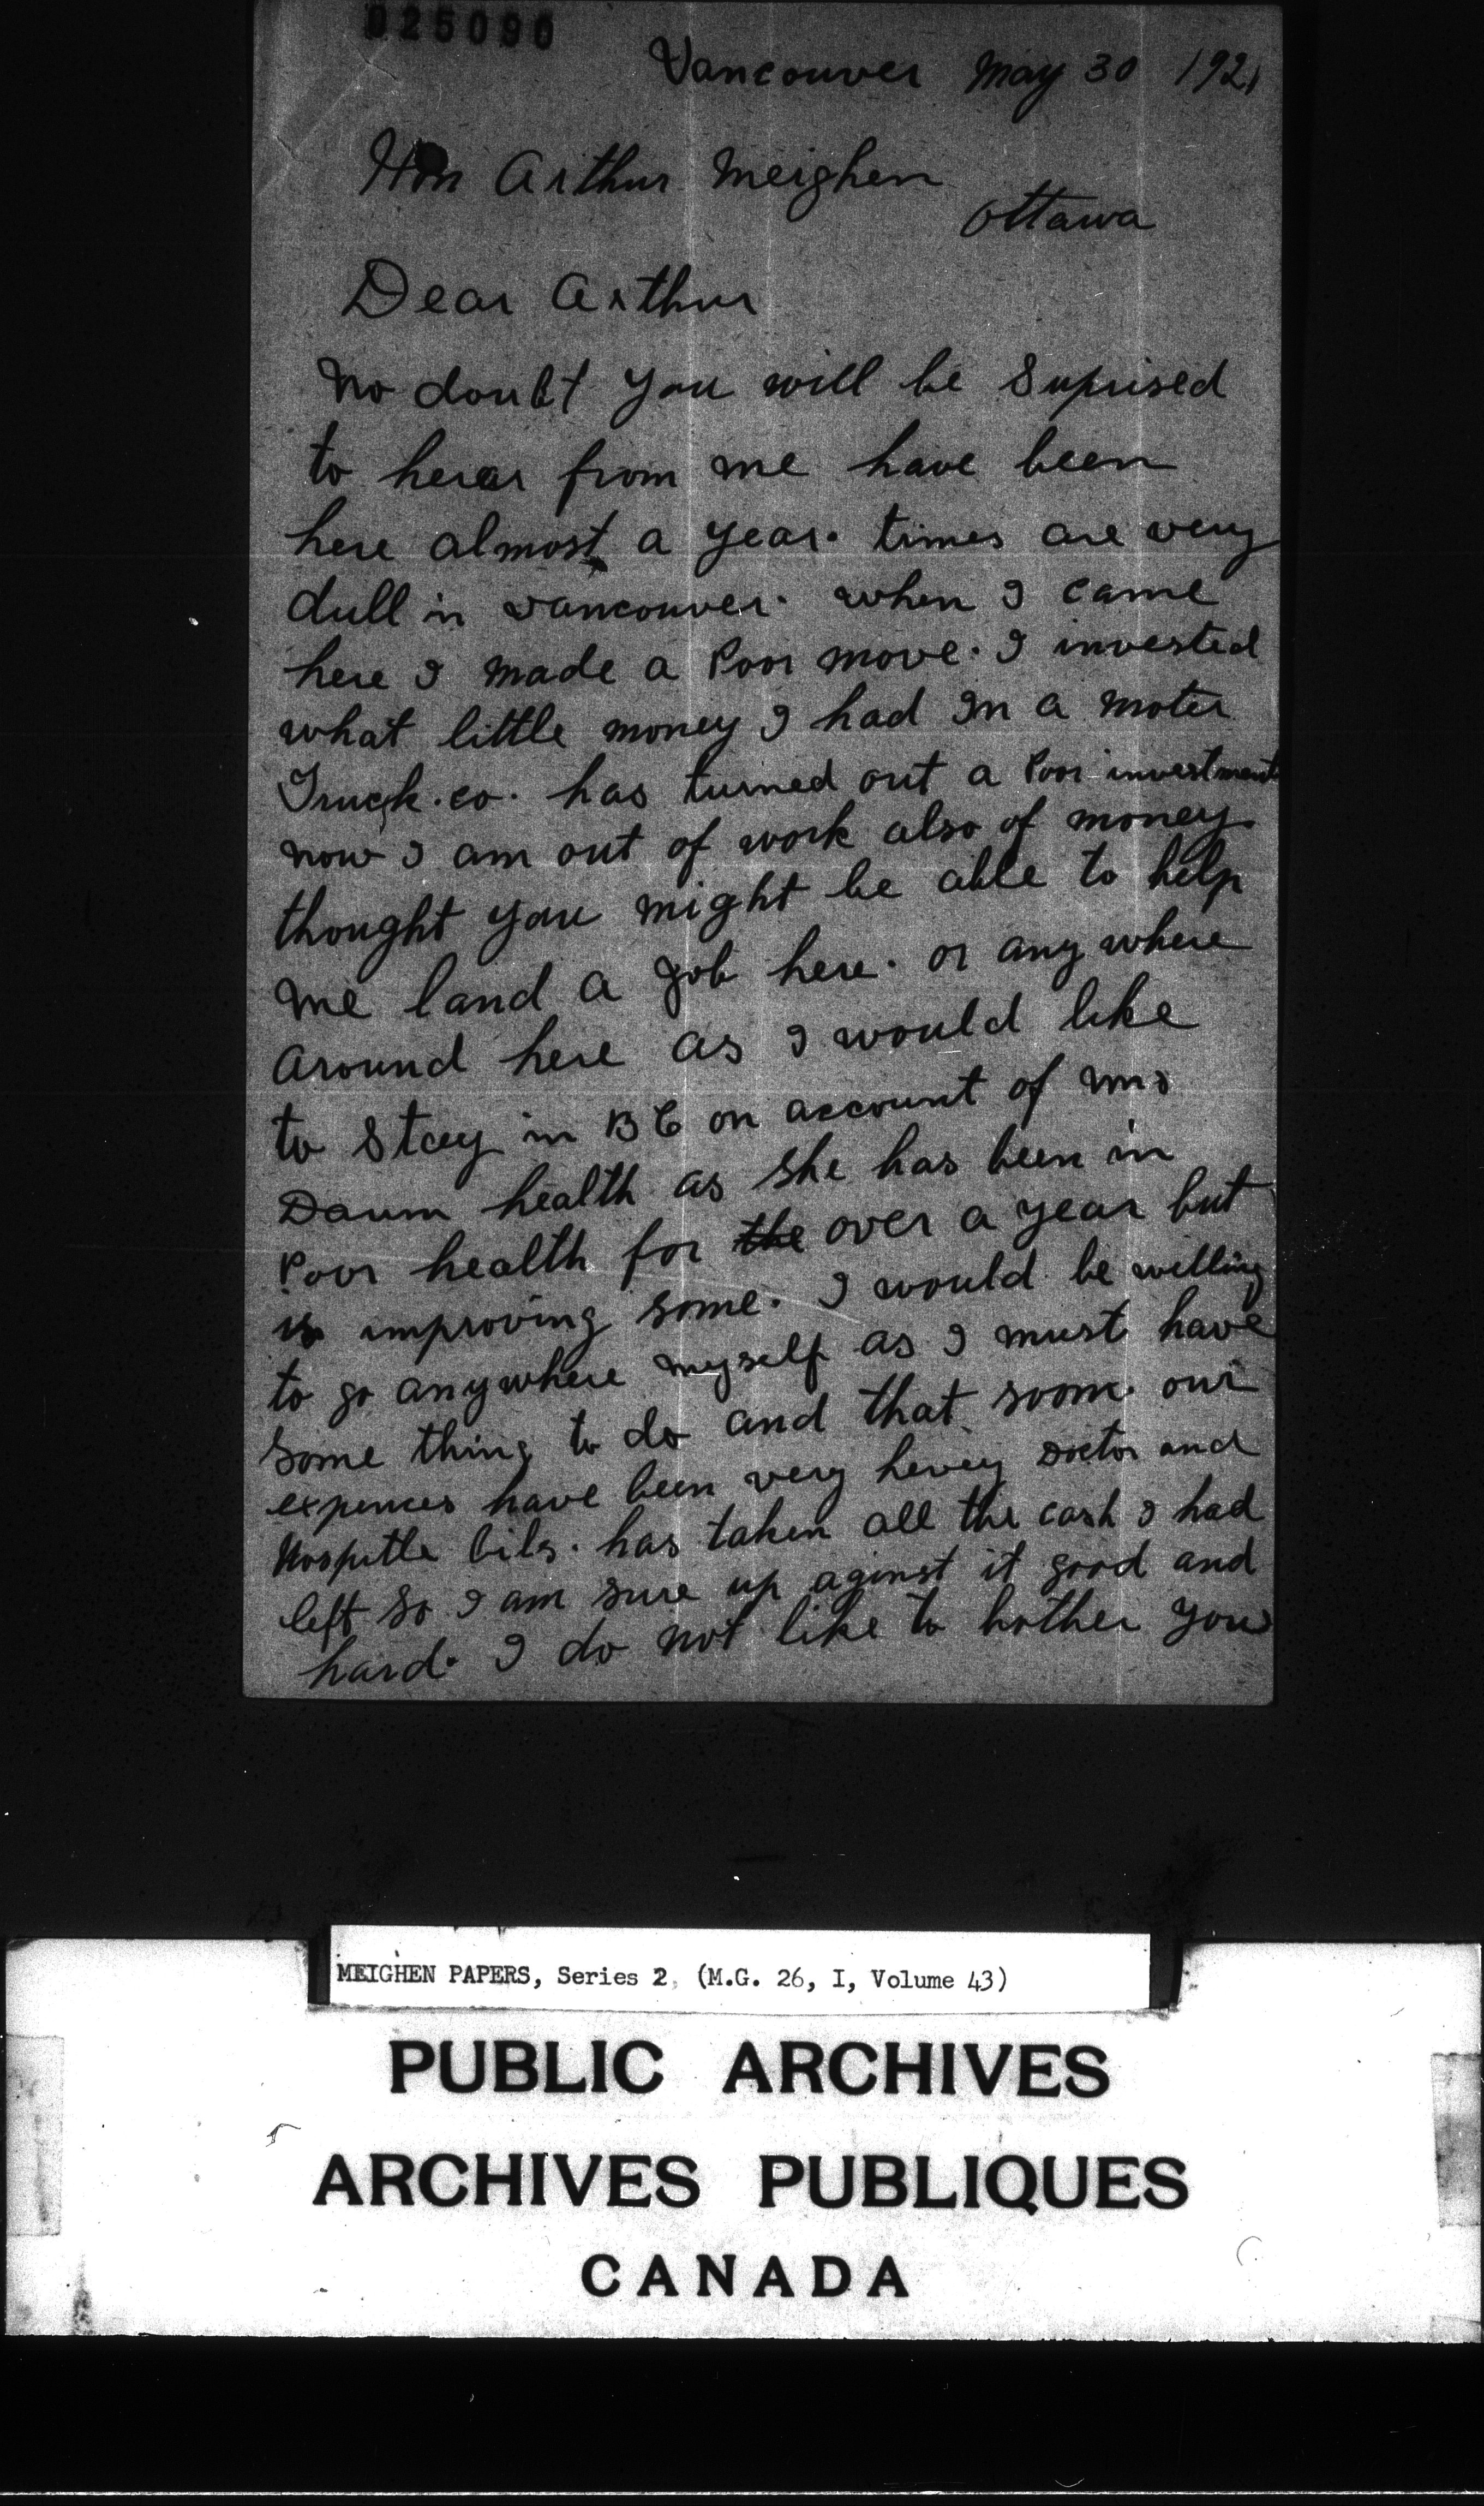 025090
Vancouver May 30 1921
Hon Arthur Meighen
Ottawa
Dear Arthur
No doubt you will be Suprised
to herar from me have been
here almost a year. times are very
dull in vancouver. when I came
here I made a Poor move. I invested
what little money I had In a moter
Truck.co. has turned out a Poor investment
now I am out of work also of money
thought you might be able to help
me land a Job here. or any where
around here as I would like
to Stay in BC on account of mrs
Daum health as She has been in
Poor health for the over a year but
is improving some. I would be willing
to go anywhere myself as I must have
Some thing to do and that soon. our
expences have been very hevey Doctor and
Hospitle bils. has taken all the cash I had
left So I am sure up aginst it good and
hard. I do not like to bother you
MEIGHEN PAPERS, Series 2 (M.G. 26, I, Volume 43)
PUBLIC ARCHIVES
ARCHIVES PUBLIQUES
CANADA